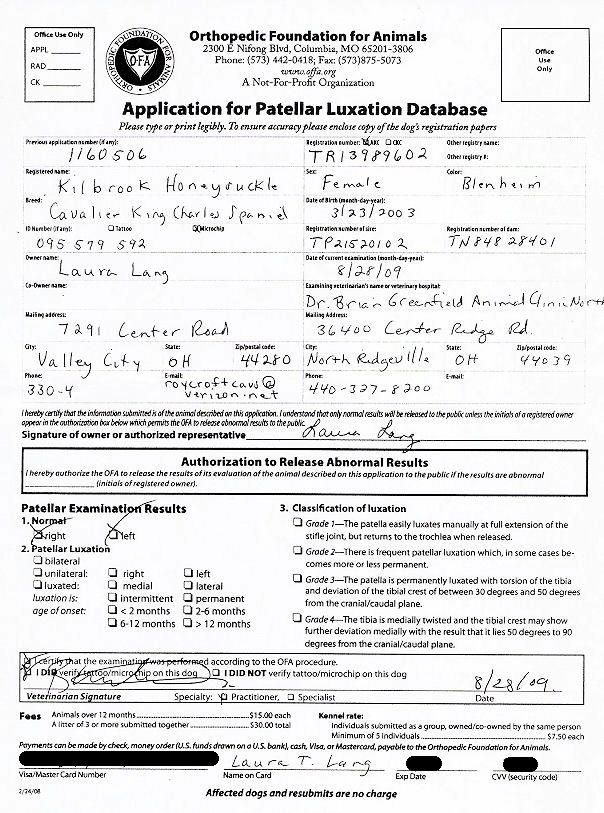 Office Use Only
APPL
RAD
CK
ORTHOPEDIC FOUNDATION FOR ANIMALS
OFA
Orthopedic Foundation for Animals
2300 E Nifong Blvd, Columbia, MO 65201-3806
Phone: (573) 442-0418; Fax: (573)875-5073
www.offa.org
A Not-For-Profit Organization
Office
Use
Only
Application for Patellar Luxation Database
Please type or print legibly. To ensure accuracy please enclose copy of the dog's registration papers
Previous application number (if any):
1160506
Registration number: AKC CKC
TR13989602
Other registry name:
Other registry #:
Registered name:
Kilbrook Honeysuckle
Sex:
Female
Color:
Blenheim
Breed:
Cavalier King Charles Spaniel
Date of Birth (month-day-year):
3/23/2003
ID Number (if any): Tattoo Microchip
095 579 592
Registration number of sire:
TP21520102
Registration number of dam:
TN84828401
Owner name:
Laura Lang
Date of current examination (month-day-year):
8/28/09
Co-Owner name:
Examining veterinarian's name or veterinary hospital:
Dr. Brian Greenfield Animal Clinic North
Mailing address:
7291 Center Road
Mailing Address:
36400 Center Ridge Rd.
City: State: Zip/postal code:
Valley City OH 44280
City: State: Zip/postal code:
North Ridgeville OH 44039
Phone: E-mail:
330-4 roycroftcavs@
verizon.net
Phone: E-mail:
440-327-8200
I hereby certify that the information submitted is of the animal described on this application. I understand that only normal results will be released to the public unless the initials of a registered owner
appear in the authorization box below which permits the OFA to release abnormal results to the public.
Signature of owner or authorized representative Laura Lang
Authorization to Release Abnormal Results
I hereby authorize the OFA to release the results of its evaluation of the animal described on this application to the public if the results are abnormal
(initials of registered owner).
Patellar Examination Results
1. Normal
right left
2. Patellar Luxation
bilateral
unilateral: right left
luxated: medial lateral
luxation is: intermittent permanent
age of onset: < 2 months 2-6 months
6-12 months > 12 months
3. Classification of luxation
Grade 1—The patella easily luxates manually at full extension of the
stifle joint, but returns to the trochlea when released.
Grade 2—There is frequent patellar luxation which, in some cases be-
comes more or less permanent.
Grade 3—The patella is permanently luxated with torsion of the tibia
and deviation of the tibial crest of between 30 degrees and 50 degrees
from the cranial/caudal plane.
Grade 4—The tibia is medially twisted and the tibial crest may show
further deviation medially with the result that it lies 50 degrees to 90
degrees from the cranial/caudal plane.
I certify that the examination was performed according to the OFA procedure.
I DID verify tattoo/microchip on this dog I DID NOT verify tattoo/microchip on this dog
8/28/09
Veterinarian Signature Specialty: Practitioner, Specialist Date
Fees Animals over 12 months $15.00 each
A litter of 3 or more submitted together $30.00 total
Kennel rate:
Individuals submitted as a group, owned/co-owned by the same person
Minimum of 5 individuals $7.50 each
Payments can be made by check, money order (U.S. funds drawn on a U.S. bank), cash, Visa, or Mastercard, payable to the Orthopedic Foundation for Animals.
Laura T. Lang
Visa/Master Card Number Name on Card Exp Date CVV (security code)
2/24/08
Affected dogs and resubmits are no charge